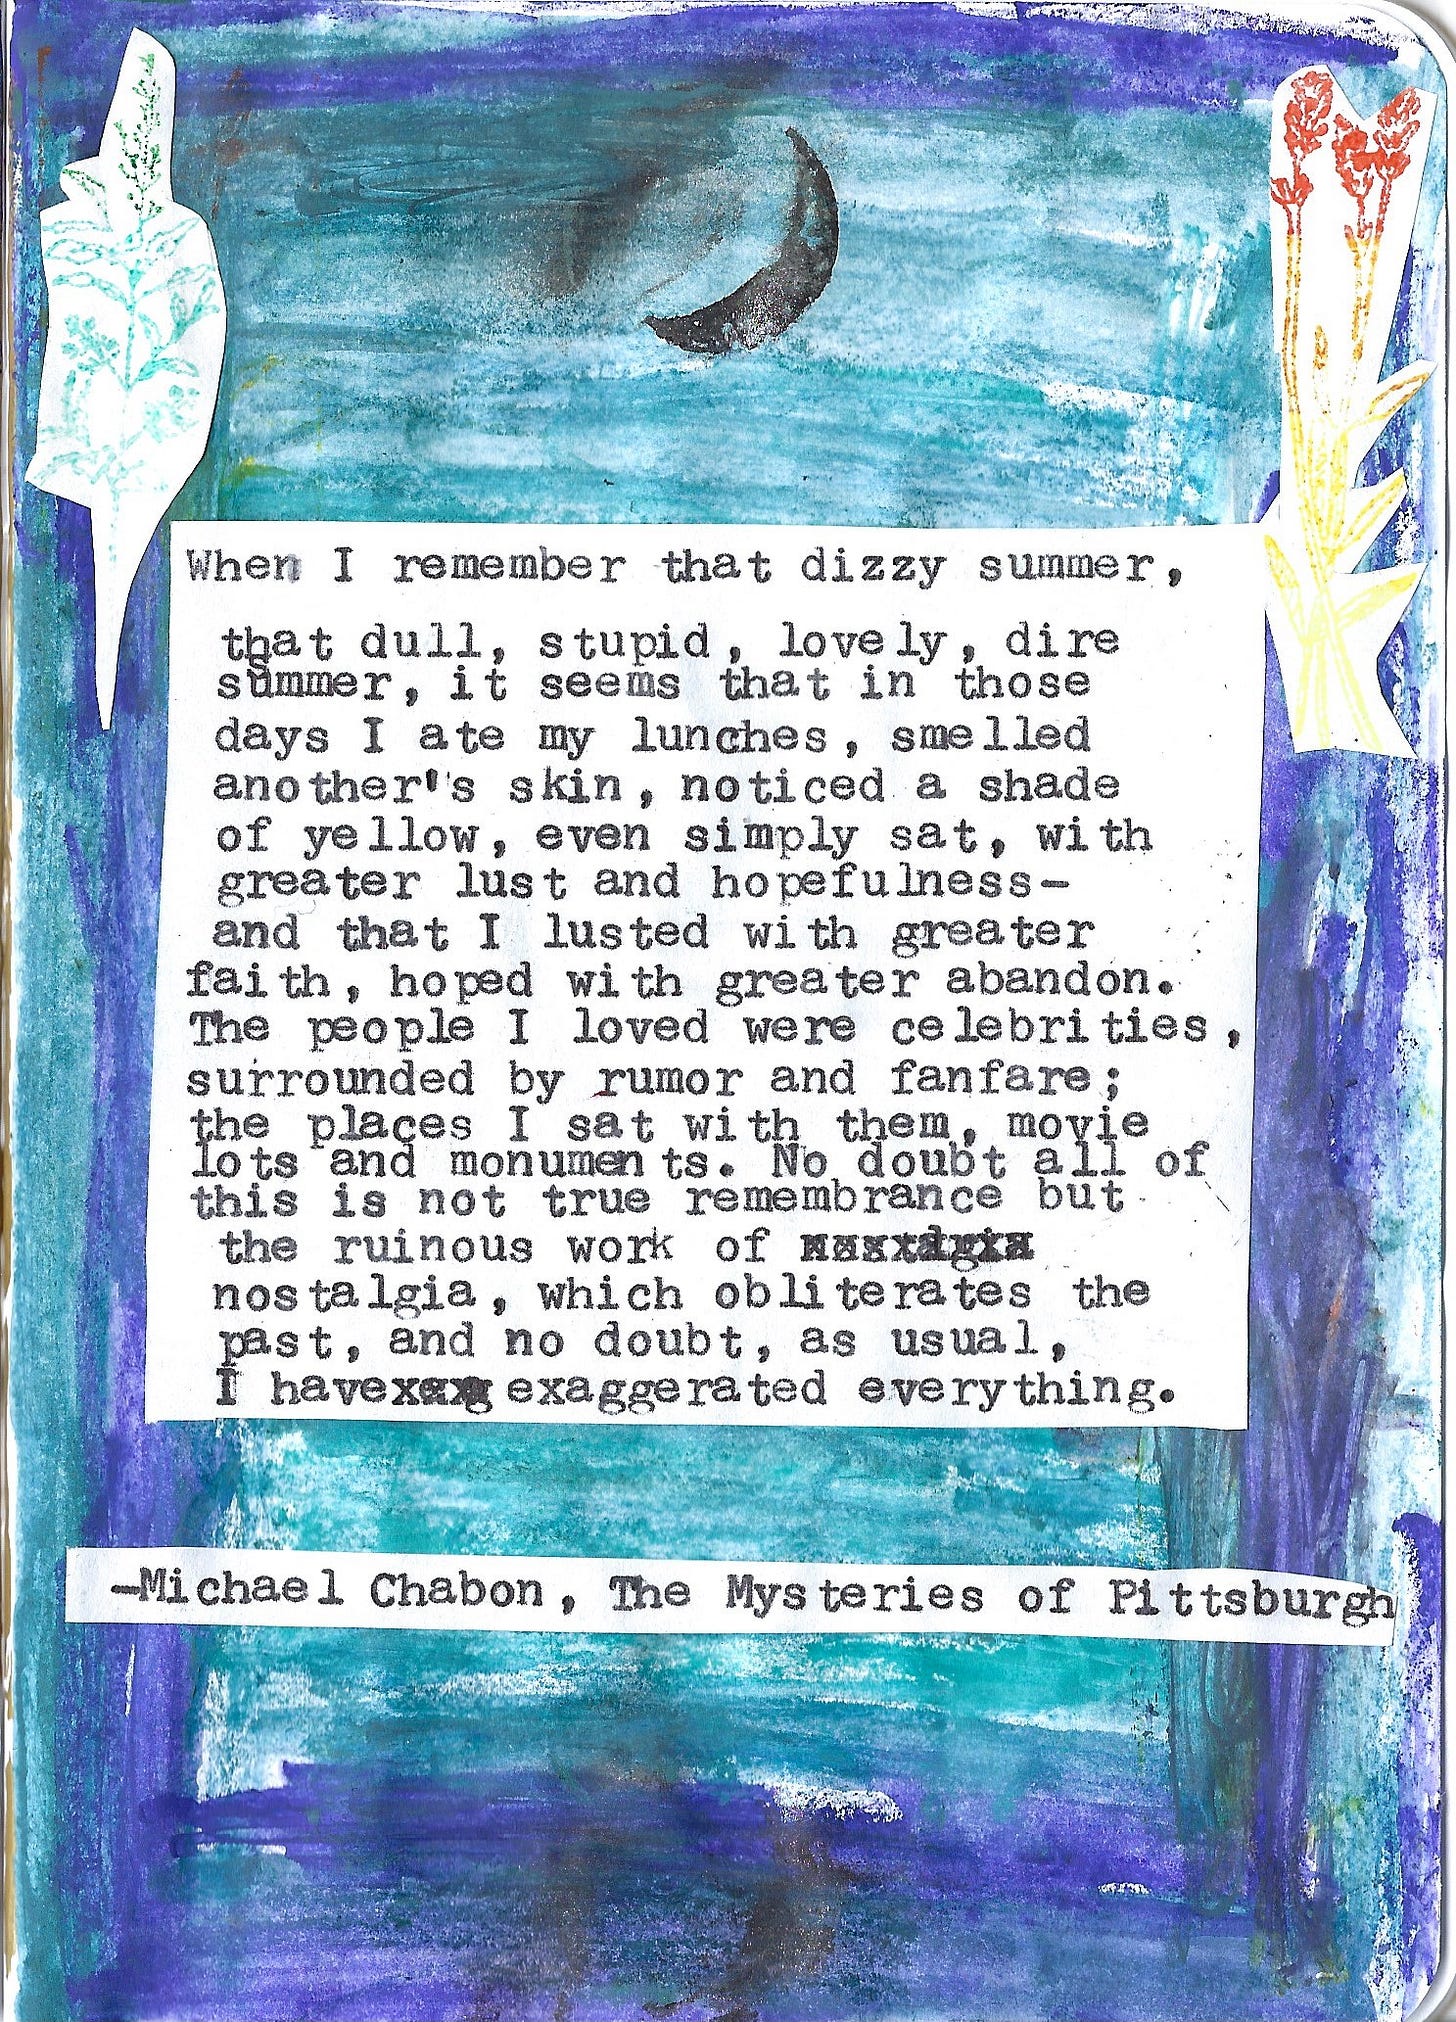 When I remember that dizzy summer,
that dull, stupid, lovely, dire
summer, it seems that in those
days I ate my lunches, smelled
another's skin, noticed a shade
of yellow, even simply sat, with
greater lust and hopefulness-
and that I lusted with greater
faith, hoped with greater abandon.
The people I loved were celebrities,
surrounded by rumor and fanfare;
the places I sat with them, movie
lots and monuments. No doubt all of
this is not true remembrance but
the ruinous work of
nostalgia, which obliterates the
past, and no doubt, as usual,
I have exaggerated everything.
-Michael Chabon, The Mysteries of Pittsburgh